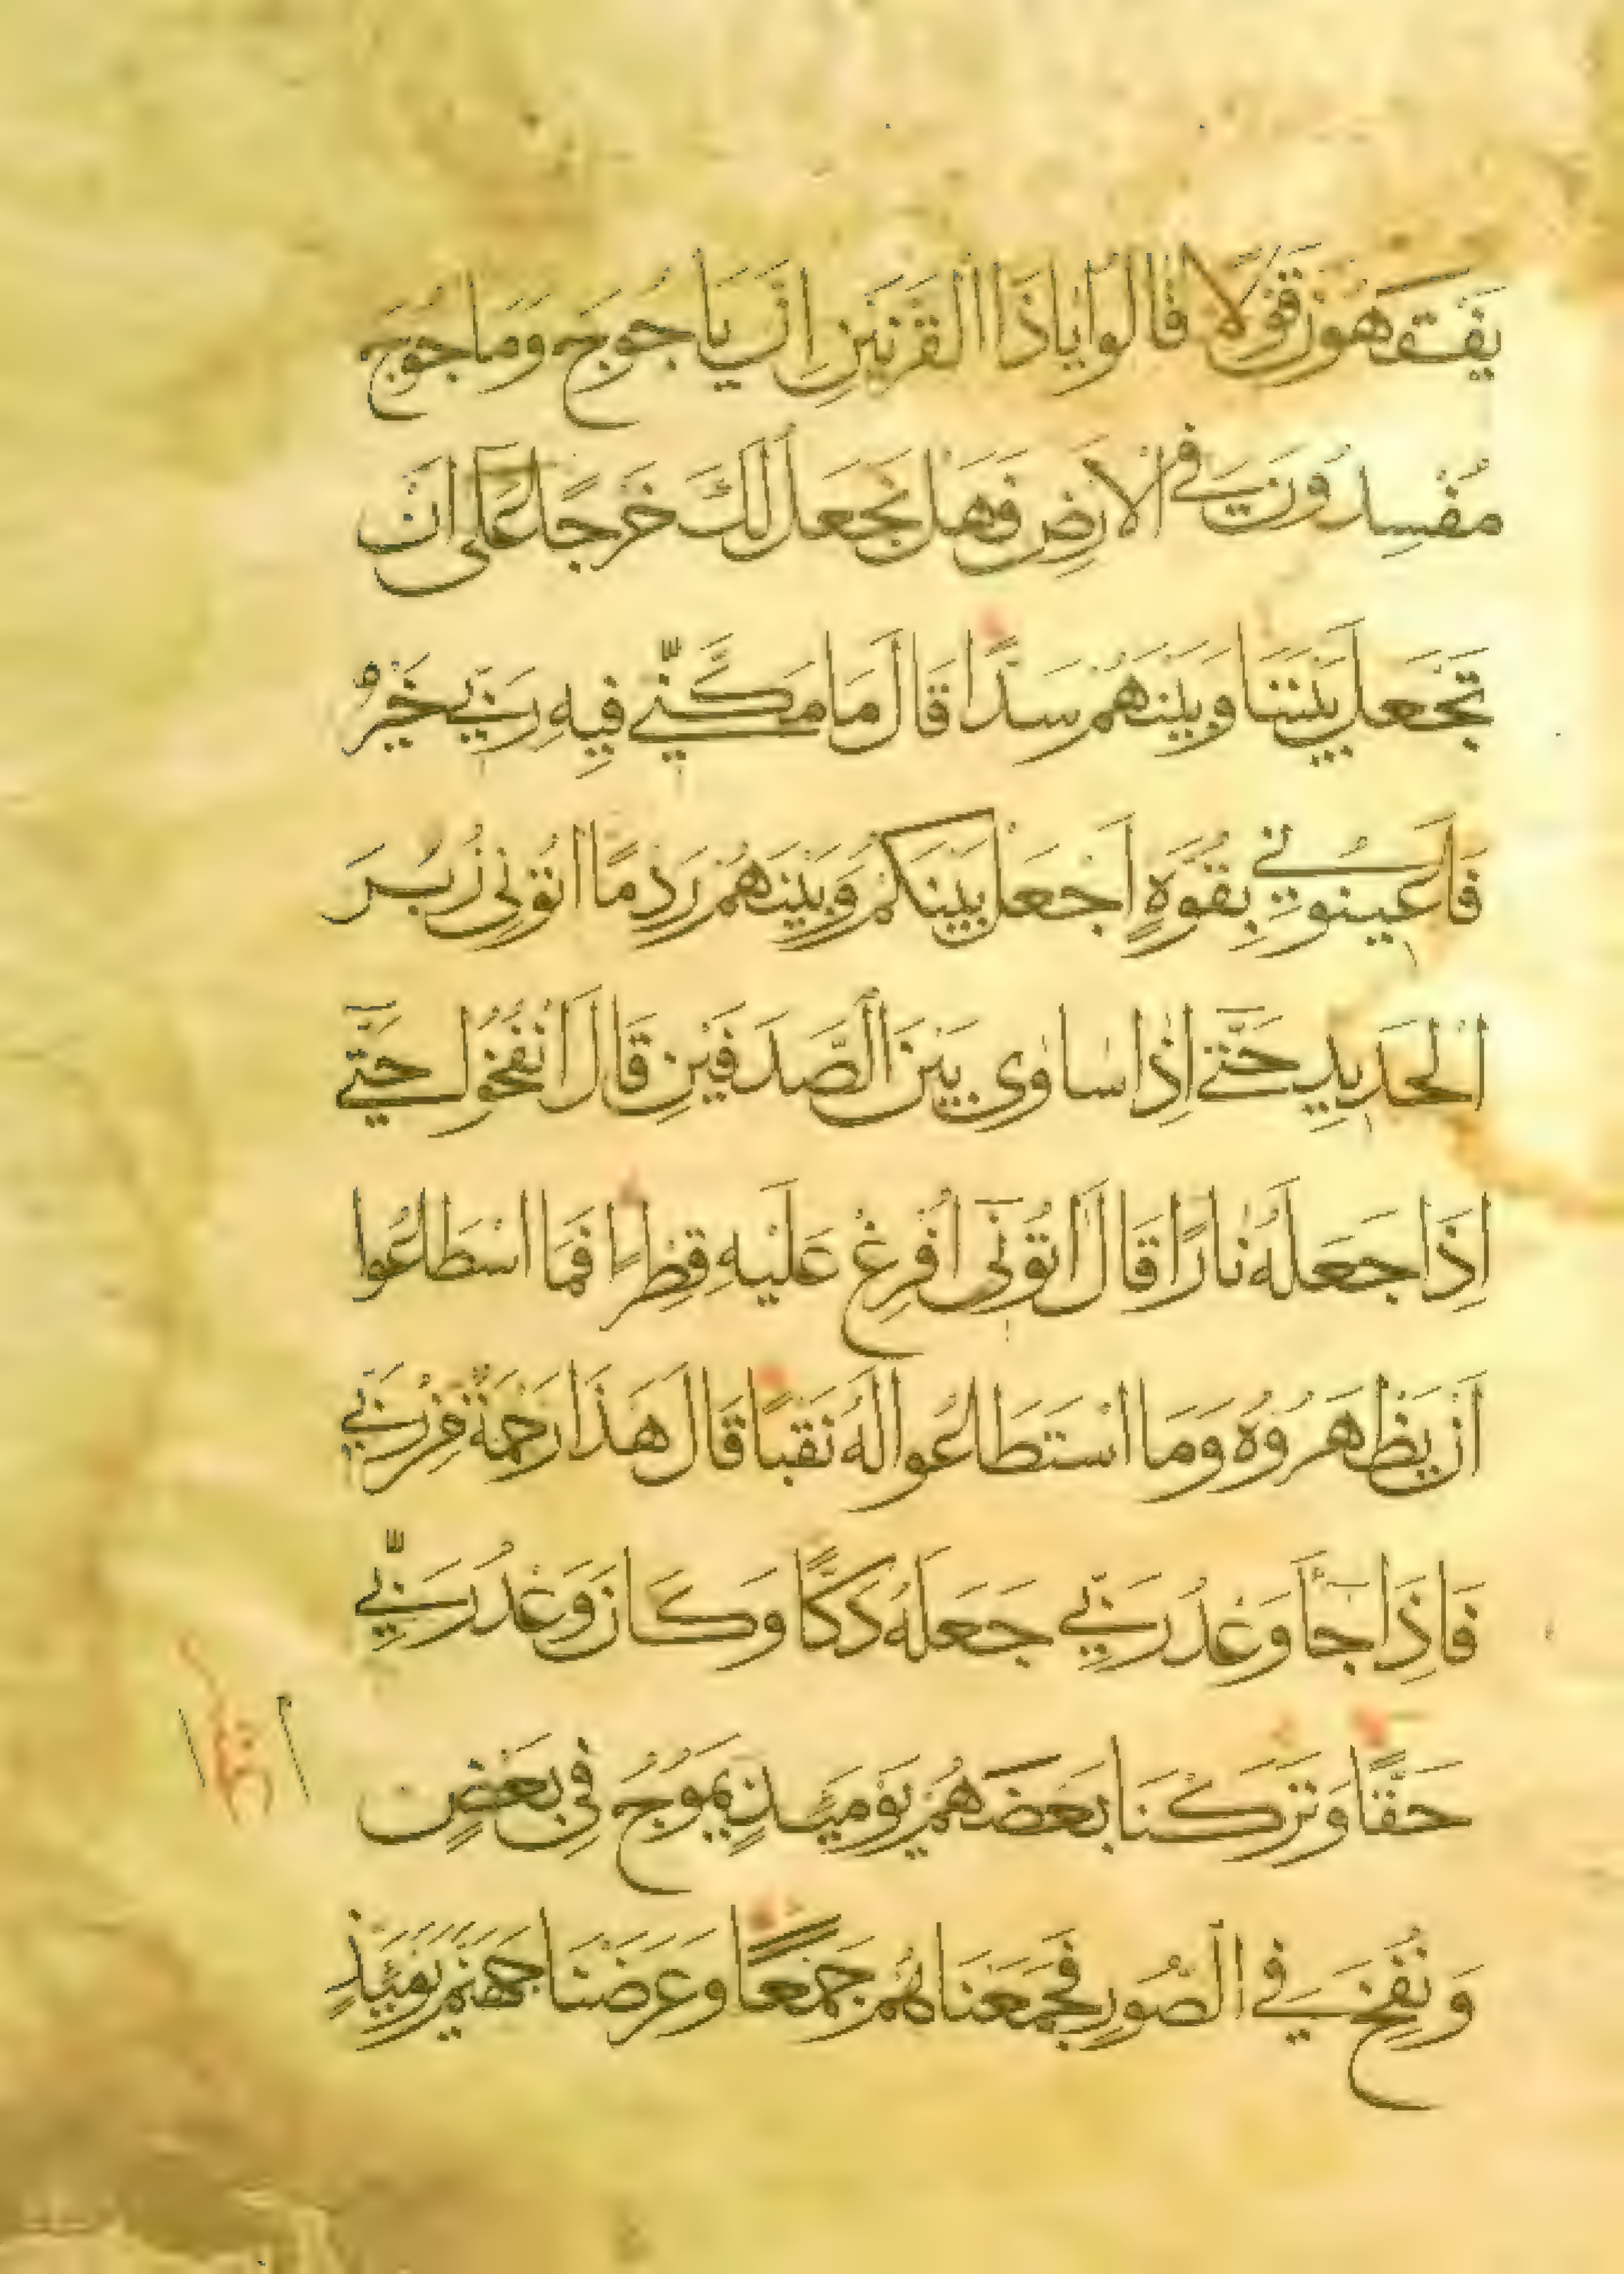 يَفْقَهُونَ قَوْلًا قَالُوا يَاذَا الْقَرْنَيْنِ اِنَّ يَاجُوجَ وَمَاجُوجَ
مُفْسِدُونَ فِي الْاَرْضِ فَهَلْ نَجْعَلُ لَكَ خَرْجًا عَلَى اَنْ
تَجْعَلَ بَيْنَنَا وَبَيْنَهُمْ سَدًّا قَالَ مَا مَكَّنِّي فِيهِ رَبِّي خَيْرٌ
فَاَعِينُونِي بِقُوَّةٍ اَجْعَلْ بَيْنَكُمْ وَبَيْنَهُمْ رَدْمًا اتُونِي زُبَرَ
الْحَدِيدِ حَتَّى اِذَا سَاوَى بَيْنَ الصَّدَفَيْنِ قَالَ انْفُخُوا حَتَّى
اِذَا جَعَلَهُ نَارًا قَالَ اتُونِي اُفْرِغْ عَلَيْهِ قِطْرًا فَمَا اسْطَاعُوا
اَنْ يَظْهَرُوهُ وَمَا اسْتَطَاعُوا لَهُ نَقْبًا قَالَ هَذَا رَحْمَةٌ مِنْ رَبِّي
فَاِذَا جَآ وَعْدُ رَبِّي جَعَلَهُ دَكًّا وَكَانَ وَعْدُ رَبِّي
حَقًّا وَتَرَكْنَا بَعْضَهُمْ يَوْمَئِذٍ يَمُوجُ فِي بَعْضٍ
وَنُفِخَ فِي الصُّورِ فَجَمَعْنَاهُمْ جَمْعًا وَعَرَضْنَا جَهَنَّمَ يَوْمَئِذٍ